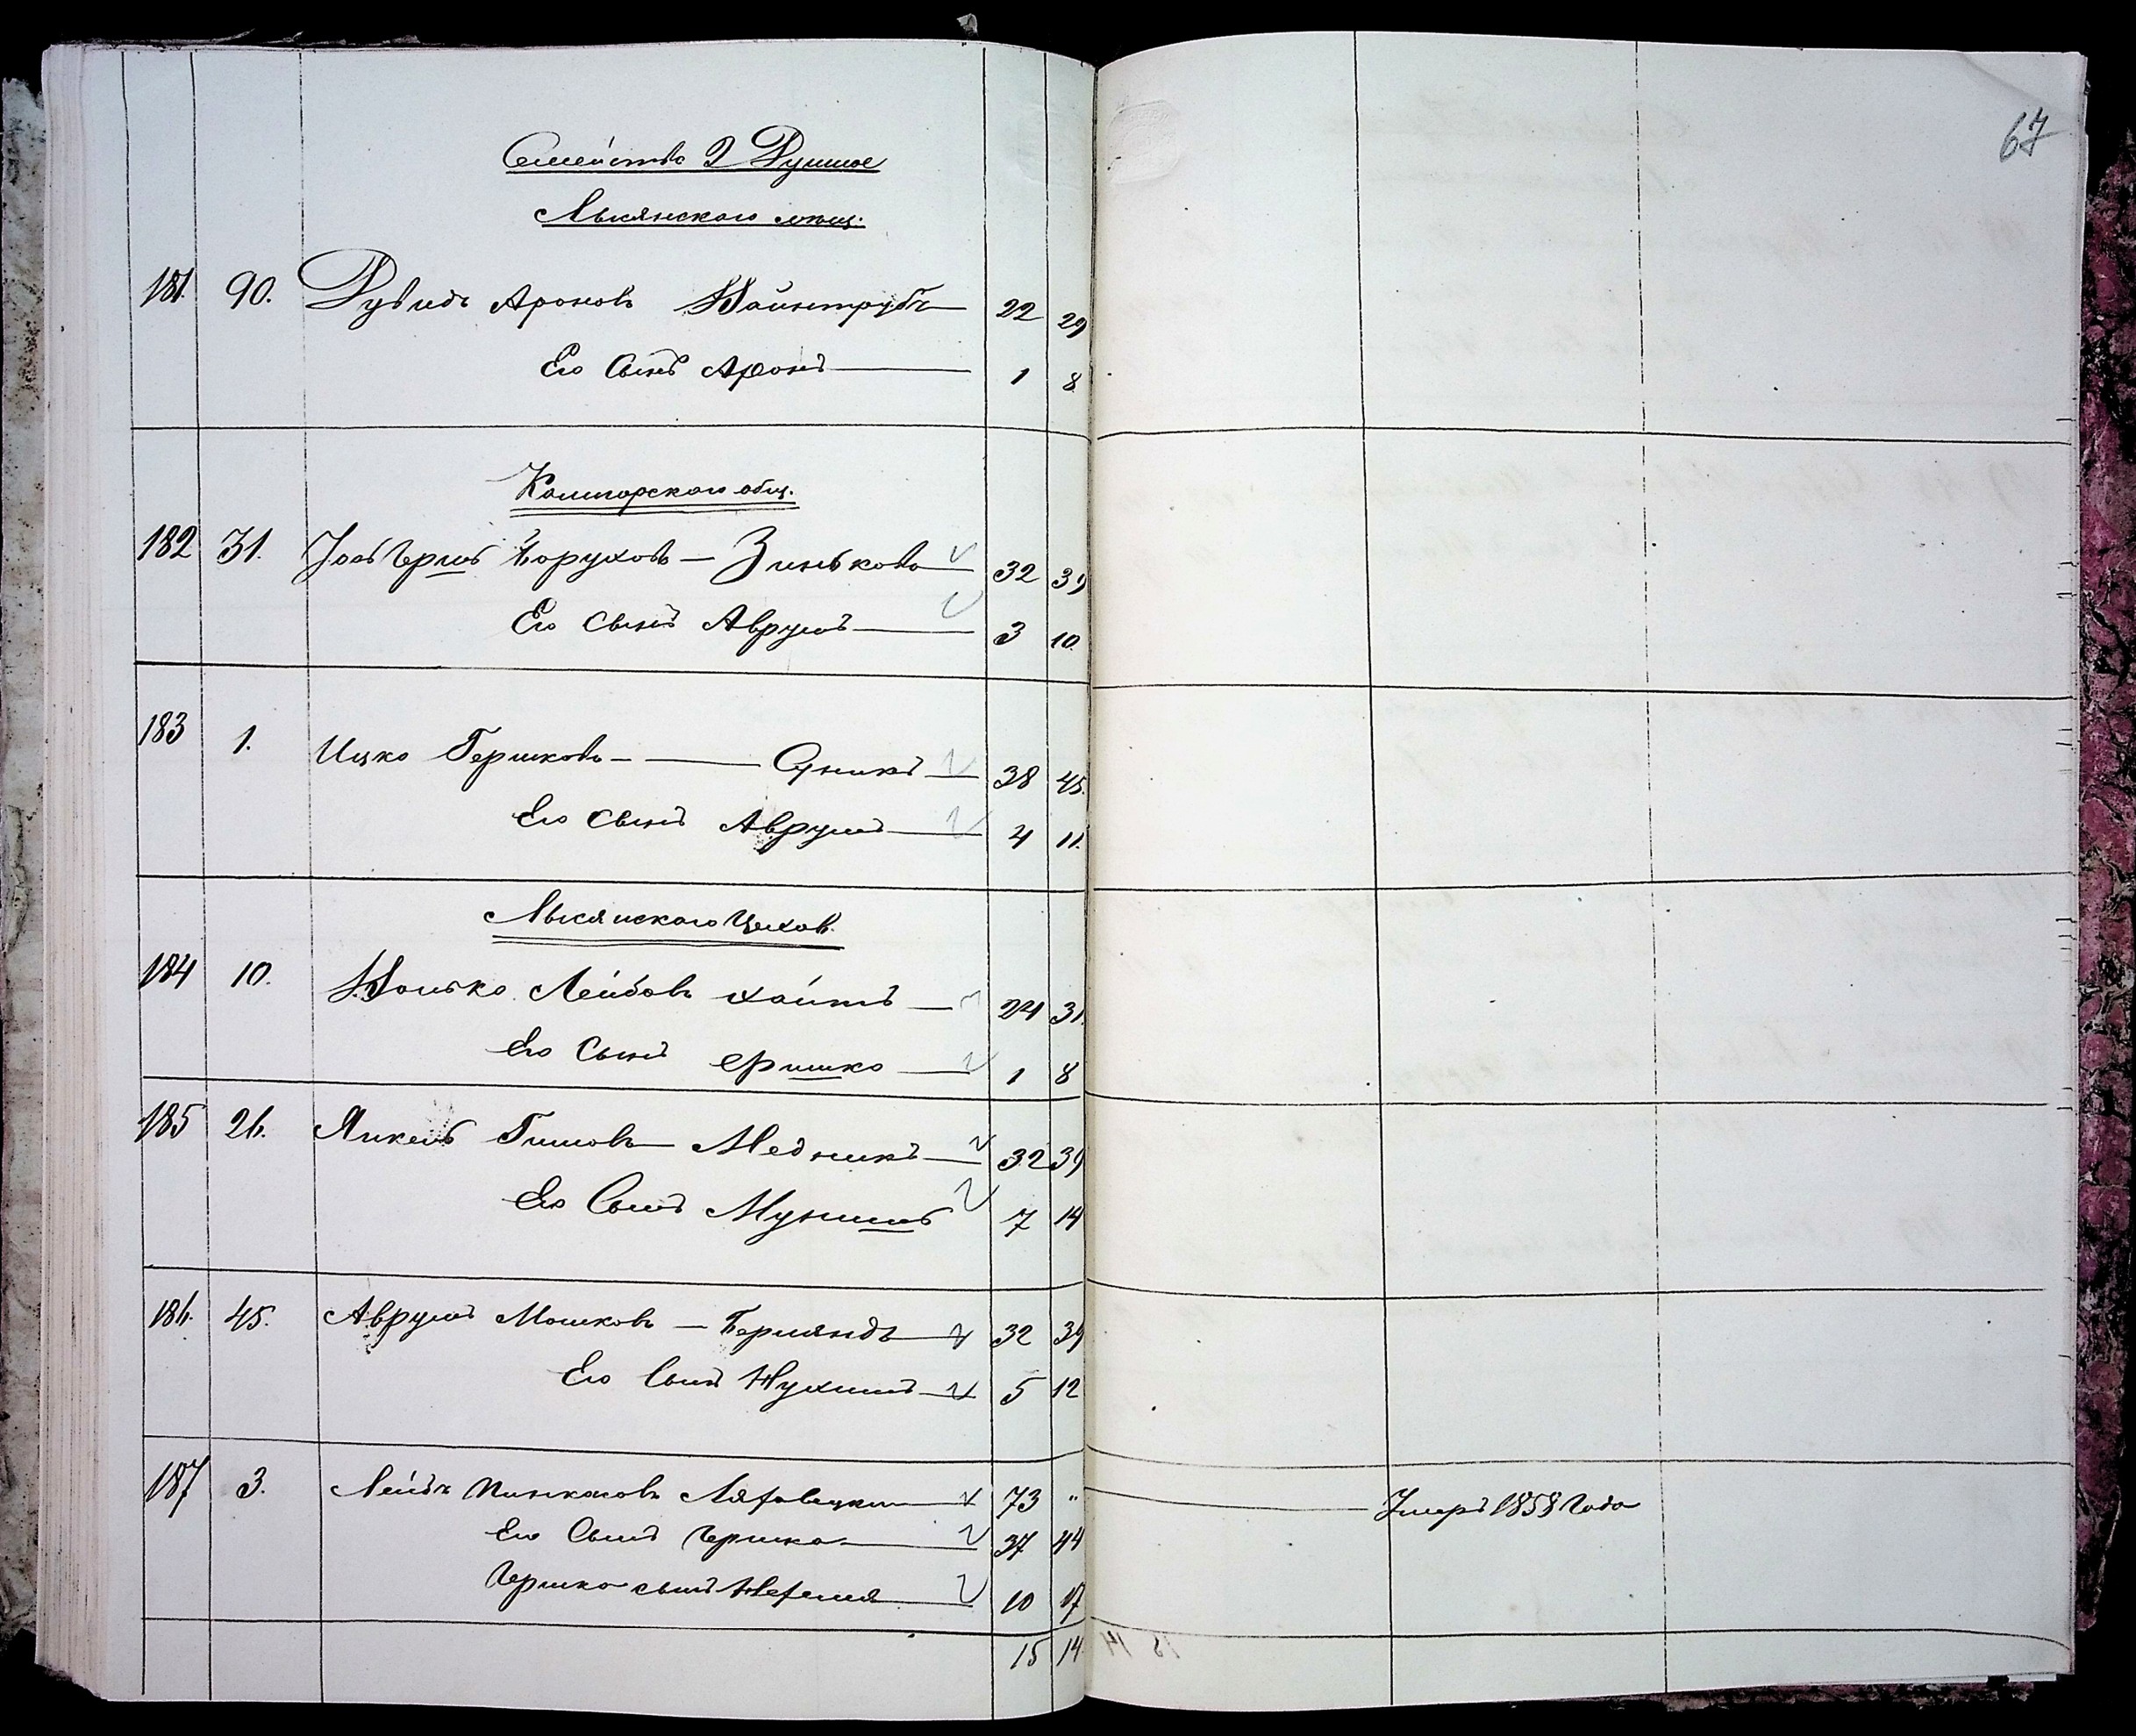 67
Семейства 2 Душное
Лысянского мѣщ:
181. 90. Рувинъ Ароновъ Вайнтрубъ 22 29
Его Сынъ Аронъ 1 8
Кошторского общ.
182 31. Іосъ Герш Борухов — Зиньково 32 39
Его Сынъ Аврумъ 3 10
183 1. Ицко Гершковъ — Ѳрикъ 38 45.
Его Сынъ Аврумъ 4 11.
Лысянского Цехов.
184 10. Волько Лейбовъ Хаитъ — 24 31.
Его Сынъ ершко 1 8
185 26. Янкель Гишовъ Медникъ 32 39
Его Сынъ Мунишъ 7 14
186. 45. Аврумъ Мошковъ — Бершядъ 32 39
Его Сынъ Нухимъ 5 12
187 3. Лейба Пинкасовъ 73 " Умеръ 1858 Года
Его Сынъ Гершко 37 44
Гершка сынъ 10 17
15 14